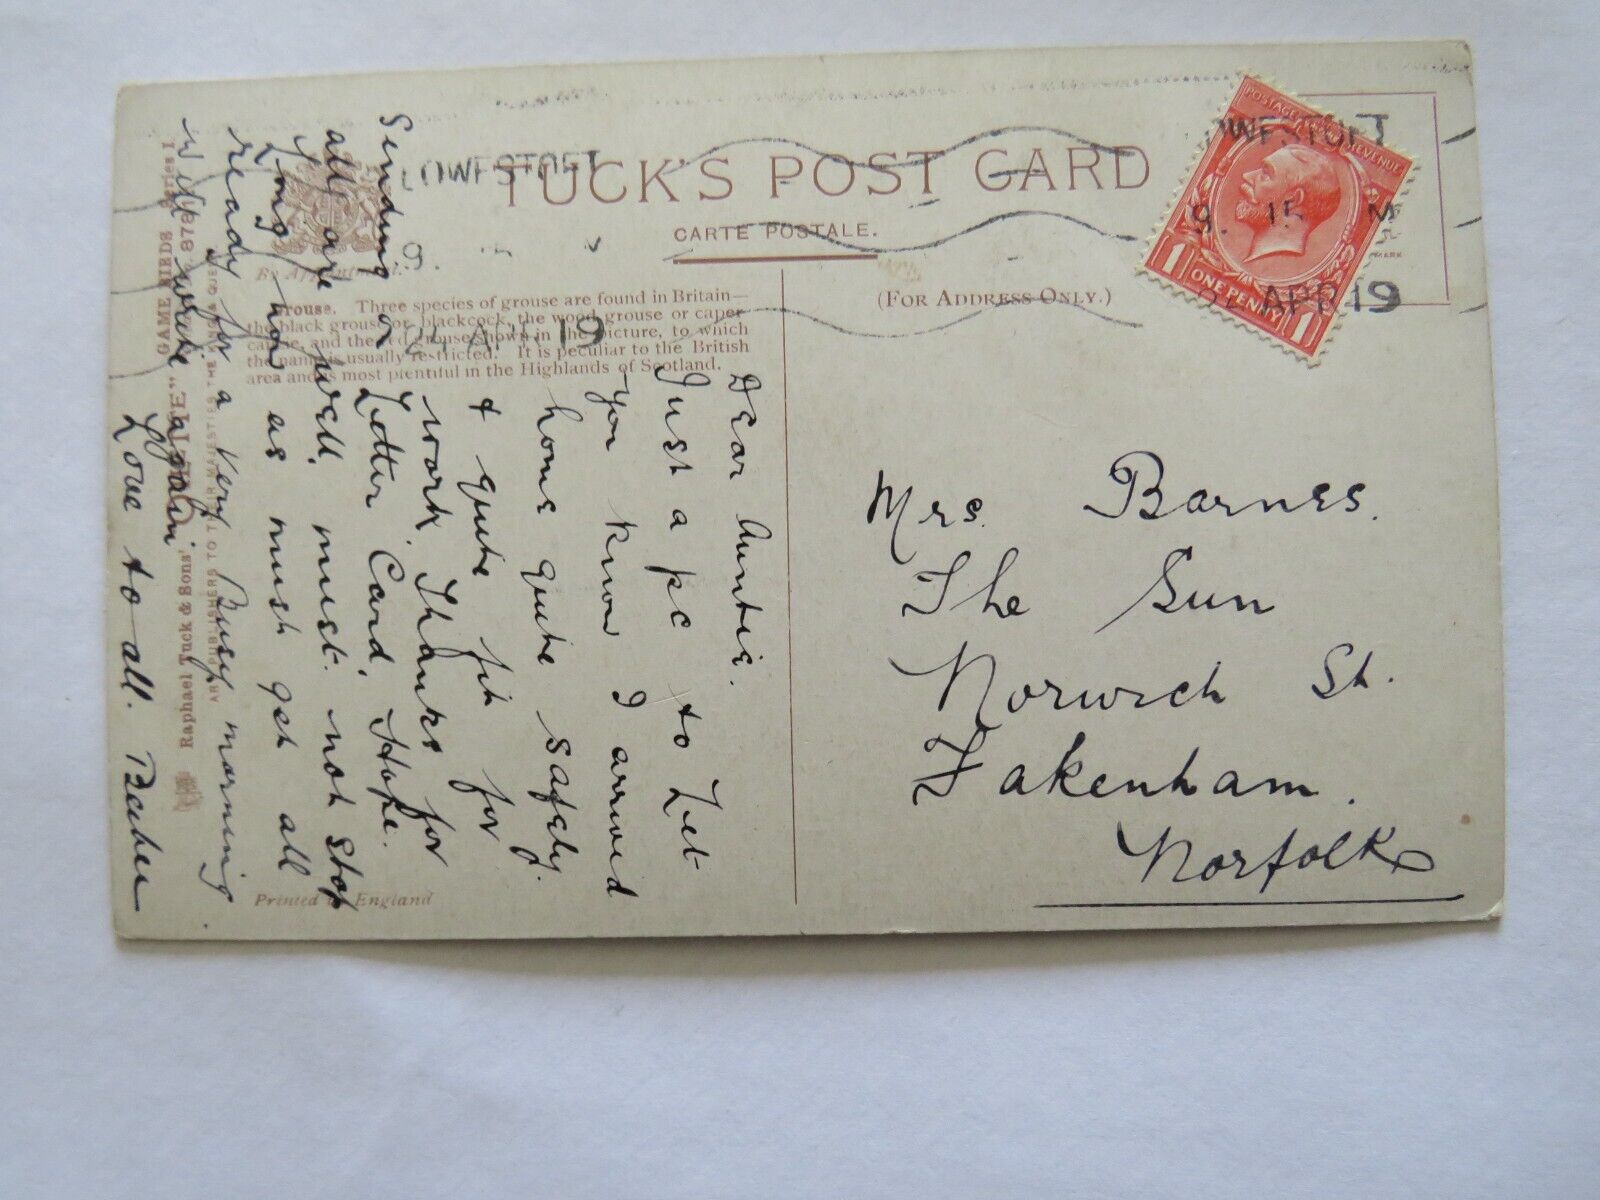 TUCK'S POST CARD
CARTE POSTALE.
(FOR ADDRESS ONLY.)
By Appointment.
Grouse. Three species of grouse are found in Britain—
the black grouse or blackcock, the wood grouse or caper-
cailzie, and the red grouse shown in the picture, to which
the name is usually restricted. It is peculiar to the British
area and is most plentiful in the Highlands of Scotland.
LOWESTOFT
9. 15
APR 19
POSTAGE REVENUE
1 ONE PENNY 1
Mrs. Barnes.
The Sun
Norwich St.
Fakenham.
Norfolk
Dear Auntie.
Just a pc to Let
you know I arrived
home quite safely.
& quite fit for
work. Thanks for
Letter Card. Hope.
all are well. must not stop
Long now as must get all
ready for a very Busy morning
Will write again
Love to all.
Sending or
Raphael Tuck & Sons' "OILETTE" GAME BIRDS Series I
PUBLISHERS TO THEIR MAJESTIES THE
Printed in England